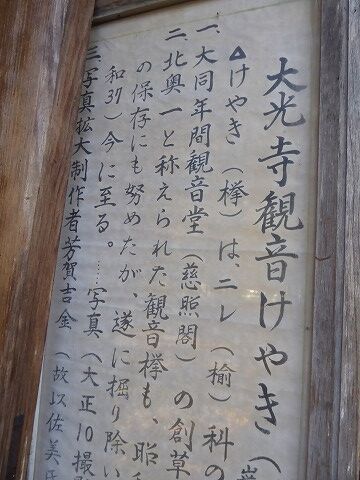 大光寺観音けやき(
▲けやき(欅)は、ニレ(楡)科の
一、大同年間観音堂(慈照閣)の創草
二、北奥一と称えられた観音欅も、昭
の保存にも努めたが、遂に掘り除い
和37)今に至る。……写真(大正10撮影
三、写真拡大制作者芳賀吉金(故以佐美氏